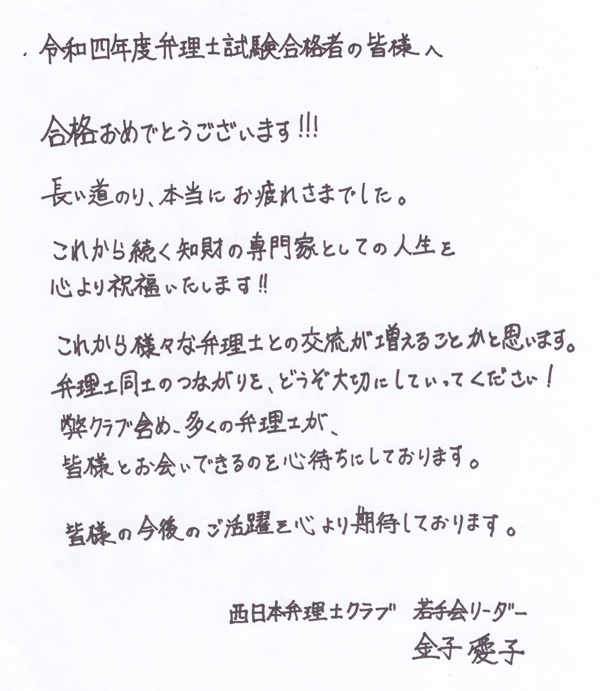 令和四年度弁理士試験合格者の皆様へ
合格おめでとうございます!!!
長い道のり、本当にお疲れさまでした。
これから続く知財の専門家としての人生を
心より祝福いたします!!
これから様々な弁理士との交流が増えることかと思います。
弁理士同士のつながりを、どうぞ大切にしていってください!
弊クラブ含め、多くの弁理士が、
皆様とお会いできるのを心待ちにしております。
皆様の今後のご活躍を心より期待しております。
西日本弁理士クラブ 若手会リーダー
金子 愛子